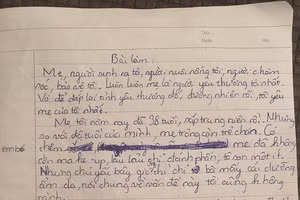 Bài làm:
Mẹ, người sinh ra tôi, người nuôi nấng tôi, người chăm
sóc, bảo vệ tôi. Luôn luôn mẹ là người yêu thương tôi nhất.
Và để đáp lại tình yêu thương đó, đương nhiên rồi, tôi yêu
mẹ của tôi nhất.
Mẹ tôi năm nay đã 38 tuổi, sắp trung niên rồi. Nhưng
so với độ tuổi của mình, mẹ trông còn trẻ chán. Có
mẹ đã không
cần ma-ke-up, lâu lâu chỉ đánh phấn, tô son một ít.
Nhưng chủ yếu bây giờ thì chỉ bộ mấy cái chống
ẩm da, nói chung về vấn đề này tôi cũng không